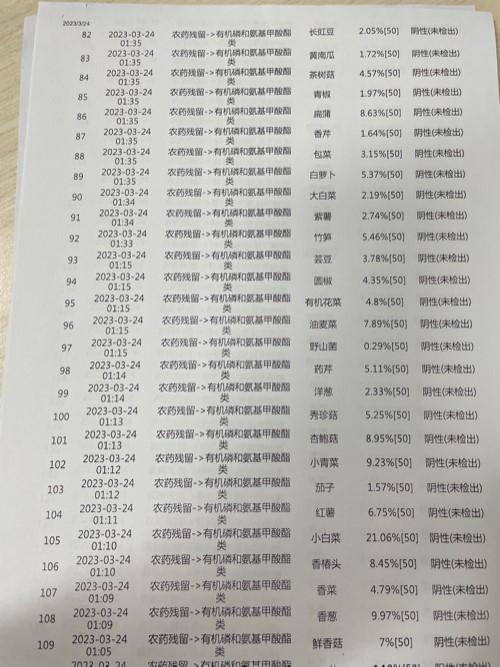 2023/3/24
82 2023-03-24 农药残留->有机磷和氨基甲酸酯 长豇豆 2.05%[50] 阴性(未检出)
01:35 类
83 2023-03-24 农药残留->有机磷和氨基甲酸酯 黄南瓜 1.72%[50] 阴性(未检出)
01:35 类
84 2023-03-24 农药残留->有机磷和氨基甲酸酯 茶树菇 4.57%[50] 阴性(未检出)
01:35 类
85 2023-03-24 农药残留->有机磷和氨基甲酸酯 青椒 1.97%[50] 阴性(未检出)
01:35 类
86 2023-03-24 农药残留->有机磷和氨基甲酸酯 扁蒲 8.63%[50] 阴性(未检出)
01:35 类
87 2023-03-24 农药残留->有机磷和氨基甲酸酯 香芹 1.64%[50] 阴性(未检出)
01:35 类
88 2023-03-24 农药残留->有机磷和氨基甲酸酯 包菜 3.15%[50] 阴性(未检出)
01:35 类
89 2023-03-24 农药残留->有机磷和氨基甲酸酯 白萝卜 5.37%[50] 阴性(未检出)
01:35 类
90 2023-03-24 农药残留->有机磷和氨基甲酸酯 大白菜 2.19%[50] 阴性(未检出)
01:34 类
91 2023-03-24 农药残留->有机磷和氨基甲酸酯 紫薯 2.74%[50] 阴性(未检出)
01:34 类
92 2023-03-24 农药残留->有机磷和氨基甲酸酯 竹笋 5.46%[50] 阴性(未检出)
01:33 类
93 2023-03-24 农药残留->有机磷和氨基甲酸酯 芸豆 3.78%[50] 阴性(未检出)
01:15 类
94 2023-03-24 农药残留->有机磷和氨基甲酸酯 圆椒 4.35%[50] 阴性(未检出)
01:15 类
95 2023-03-24 农药残留->有机磷和氨基甲酸酯 有机花菜 4.8%[50] 阴性(未检出)
01:15 类
96 2023-03-24 农药残留->有机磷和氨基甲酸酯 油麦菜 7.89%[50] 阴性(未检出)
01:15 类
97 2023-03-24 农药残留->有机磷和氨基甲酸酯 野山菌 0.29%[50] 阴性(未检出)
01:15 类
98 2023-03-24 农药残留->有机磷和氨基甲酸酯 药芹 5.11%[50] 阴性(未检出)
01:14 类
99 2023-03-24 农药残留->有机磷和氨基甲酸酯 洋葱 2.33%[50] 阴性(未检出)
01:14 类
100 2023-03-24 农药残留->有机磷和氨基甲酸酯 秀珍菇 5.25%[50] 阴性(未检出)
01:13 类
101 2023-03-24 农药残留->有机磷和氨基甲酸酯 杏鲍菇 8.95%[50] 阴性(未检出)
01:13 类
102 2023-03-24 农药残留->有机磷和氨基甲酸酯 小青菜 9.23%[50] 阴性(未检出)
01:12 类
103 2023-03-24 农药残留->有机磷和氨基甲酸酯 茄子 1.57%[50] 阴性(未检出)
01:12 类
104 2023-03-24 农药残留->有机磷和氨基甲酸酯 红薯 6.75%[50] 阴性(未检出)
01:11 类
105 2023-03-24 农药残留->有机磷和氨基甲酸酯 小白菜 21.06%[50] 阴性(未检出)
01:10 类
106 2023-03-24 农药残留->有机磷和氨基甲酸酯 香椿头 8.45%[50] 阴性(未检出)
01:10 类
107 2023-03-24 农药残留->有机磷和氨基甲酸酯 香菜 4.79%[50] 阴性(未检出)
01:09 类
108 2023-03-24 农药残留->有机磷和氨基甲酸酯 香葱 9.97%[50] 阴性(未检出)
01:09 类
109 2023-03-24 农药残留->有机磷和氨基甲酸酯 鲜香菇 7%[50] 阴性(未检出)
01:05 类
2023-03-24 农药残留->有机磷和氨基甲酸酯